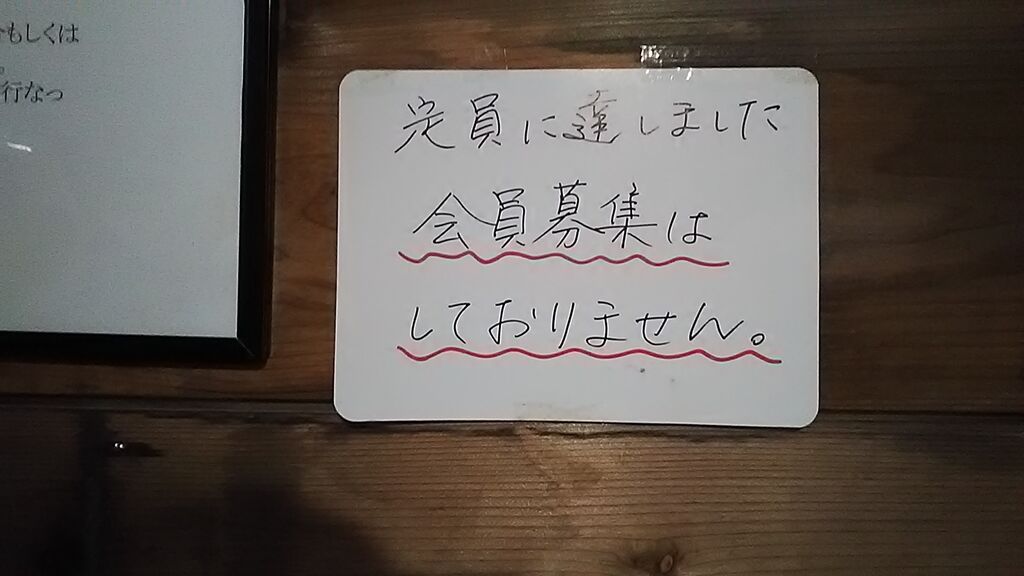 もしくは
。
行なっ
定員に達しました
会員募集は
しておりません。